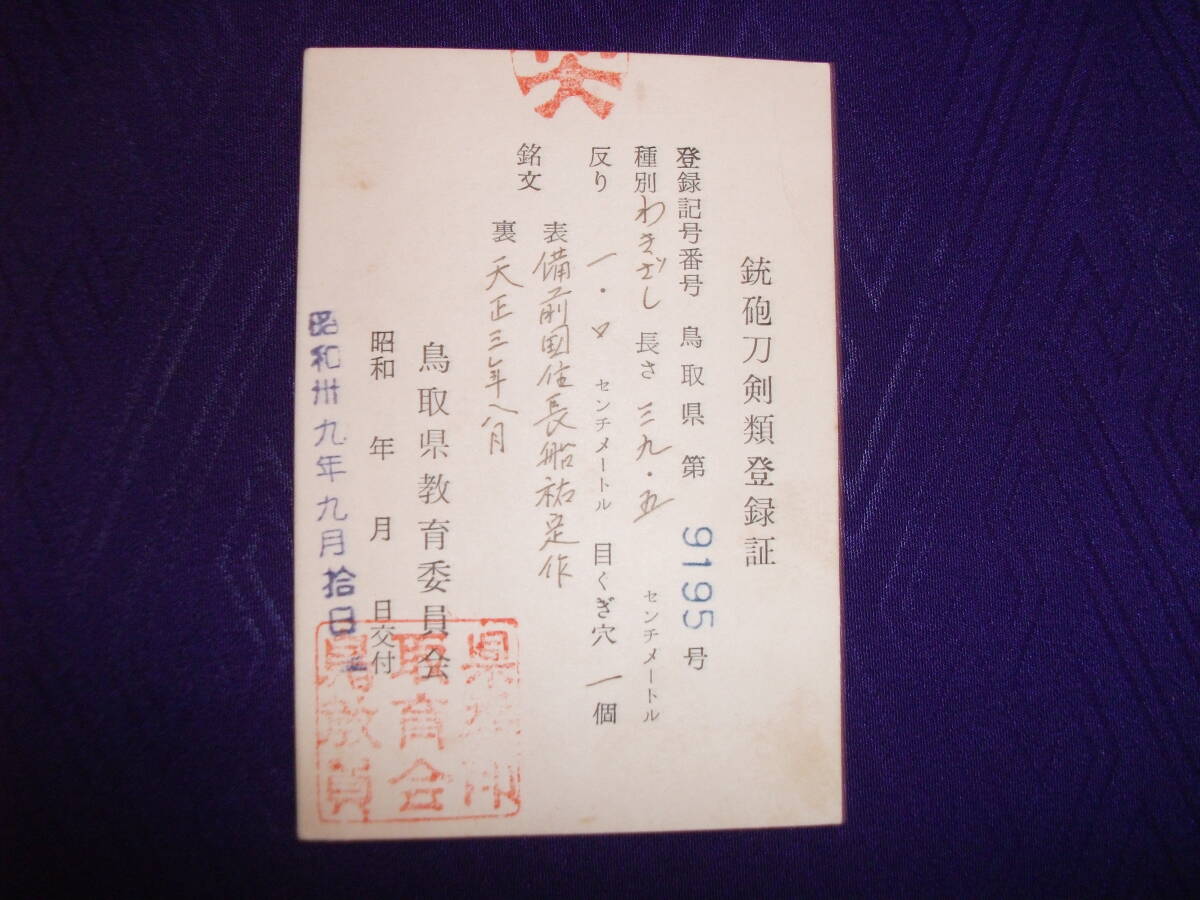 銃砲刀剣類登録証
登録記号番号 鳥取県 第 9195 号
種別 わきざし 長さ 三九・五 センチメートル
反り 一・〇 センチメートル 目くぎ穴 一個
銘文 表 備前国住長船祐定作
裏 天正三年八月
鳥取県教育委員会
昭和 年 月 日交付
昭和卅九年九月拾日